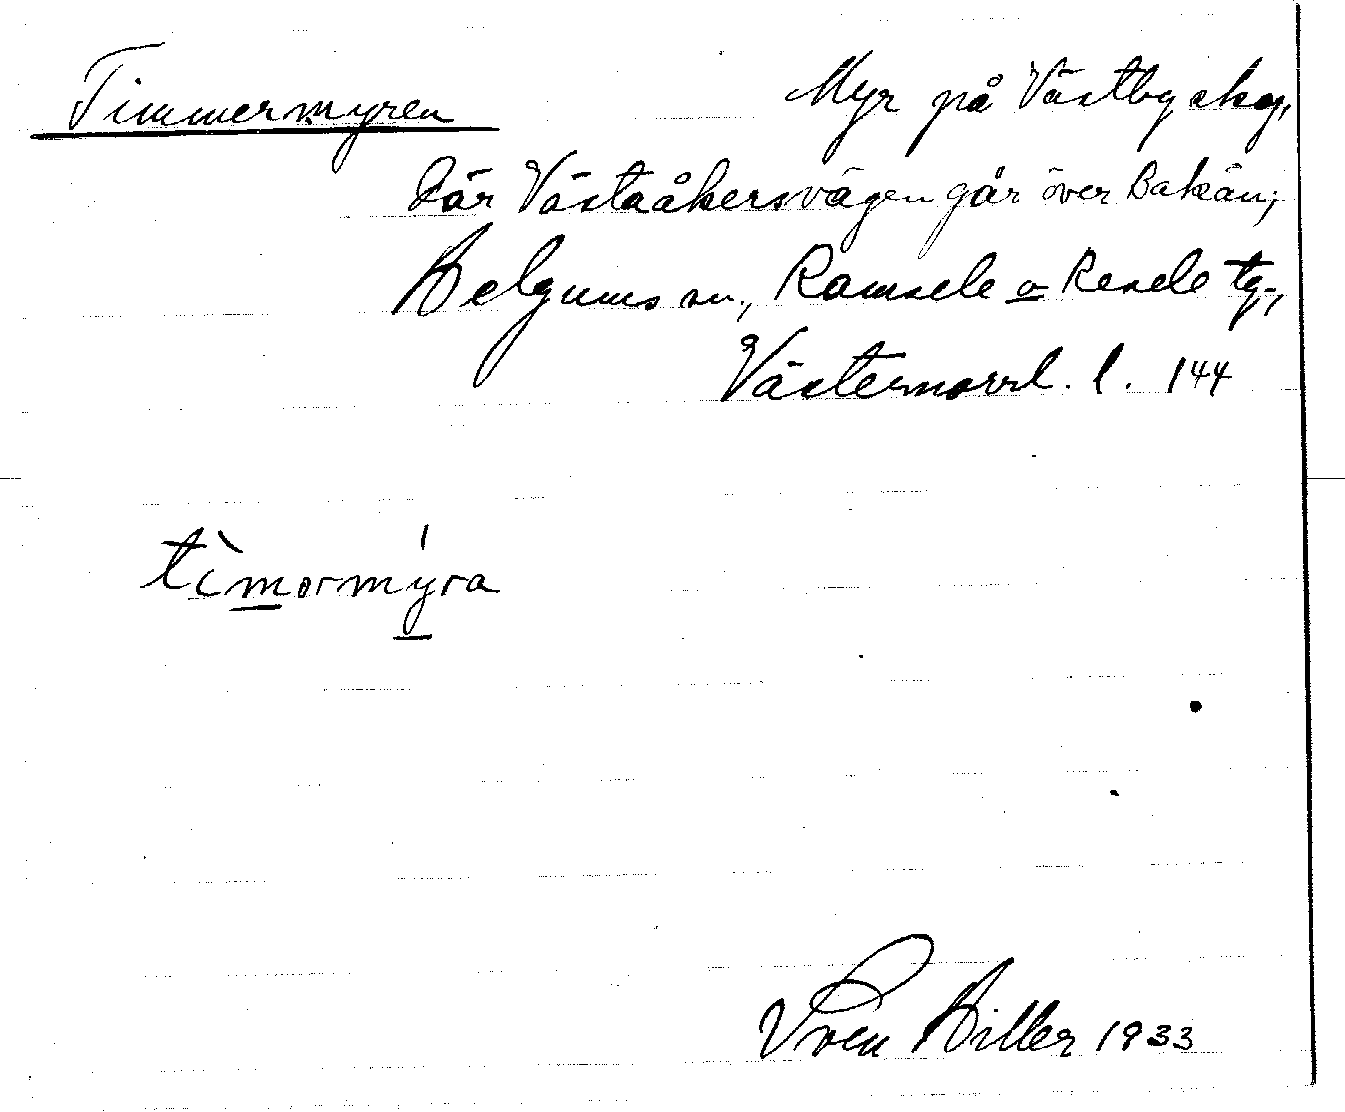 Timmermyren Myr på Västbyskog,
där Västaåkersvägen går över Bakån;
Helgums sn., Ramsele o Resele tg.,
Västernorrl. l. 144
tìmormýra
Sven Hiller 1933